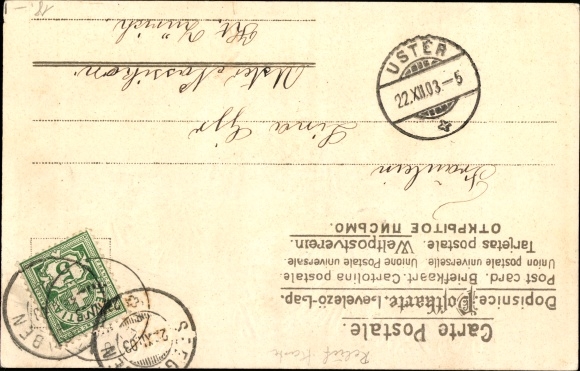 Carte Postale.
Dopisnice. Postkarte. Levelező-Lap.
Post card. Briefkaart. Cartolina postale
Union postale universelle. Unione postale universale
Tarjetas postale. Weltpostverein.
ОТКРЫТОЕ ПИСЬМО.
Fräulein
Lina
Uster Nossikon.
Kt. Zürich.
USTER
22.XII.03.–5
18.–
5